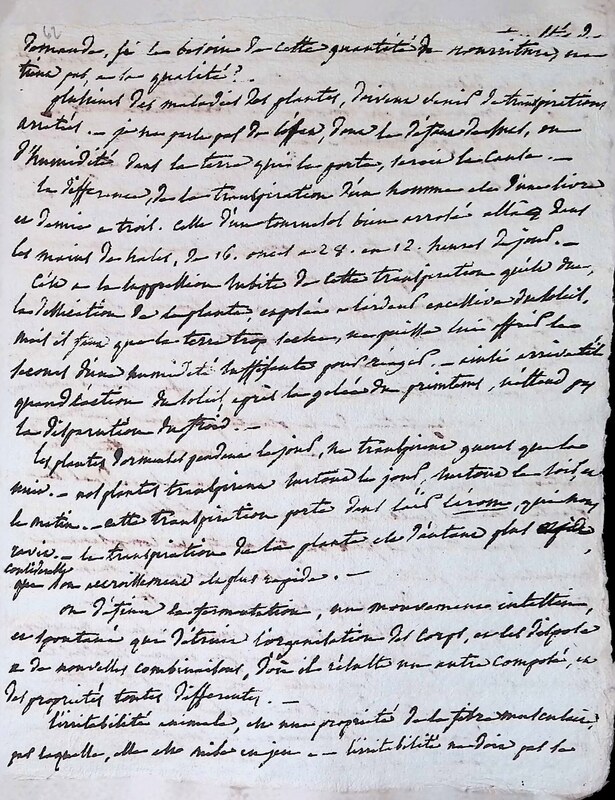 62
demande, si le besoin de cette quantité de nourriture, ne
tiens pas, a la qualité?
plusieurs des maladies des plantes, doivent venir de transpirations
arretés. — je ne parle pas de d'humidité dans la terre
d'humidité dans la terre qui la porte, seroit la cause. —
la différence, de la transpiration d'un homme est d'une livre
et demie a trois. Celle d'un tournesol bien arrosé alla dans
les mains de hales, de 16. onces a 28. en 12. heures de jour. —
C'est a la suppression subite de cette transpiration qu'est due,
la dessication de la plante, exposée a l'ardeur excessive du soleil,
mais il faut que la terre trop seche, ne puisse lui offrir le
secours d'une humidité suffisante pour reagir. — ainsi arrive-t-il
quand l'action du soleil, après la gelée du printems, n'attend pas
la disparution du froid. —
les plantes dormeuses pendant le jour, ne transpirent gueres que la
nuit. — nos plantes transpirent surtout le jour, surtout le soir, et
le matin. — cette transpiration porte dans l'air l'arome, qui nous
ravit. — la transpiration de la plante est d'autant plus
considerable
que son accroissement est plus rapide. —
on définit la fermentation, un mouvement intestin,
et spontané qui détruit l'organisation des corps, et les dispose
a de nouvelles combinaisons, d'où il résulte un autre composé, et
des propriétés toutes differentes. —
l'irritabilité animale, est une propriété de la fibre musculaire,
par laquelle, elle est mise en jeu — l'irritabilité ne doit pas se